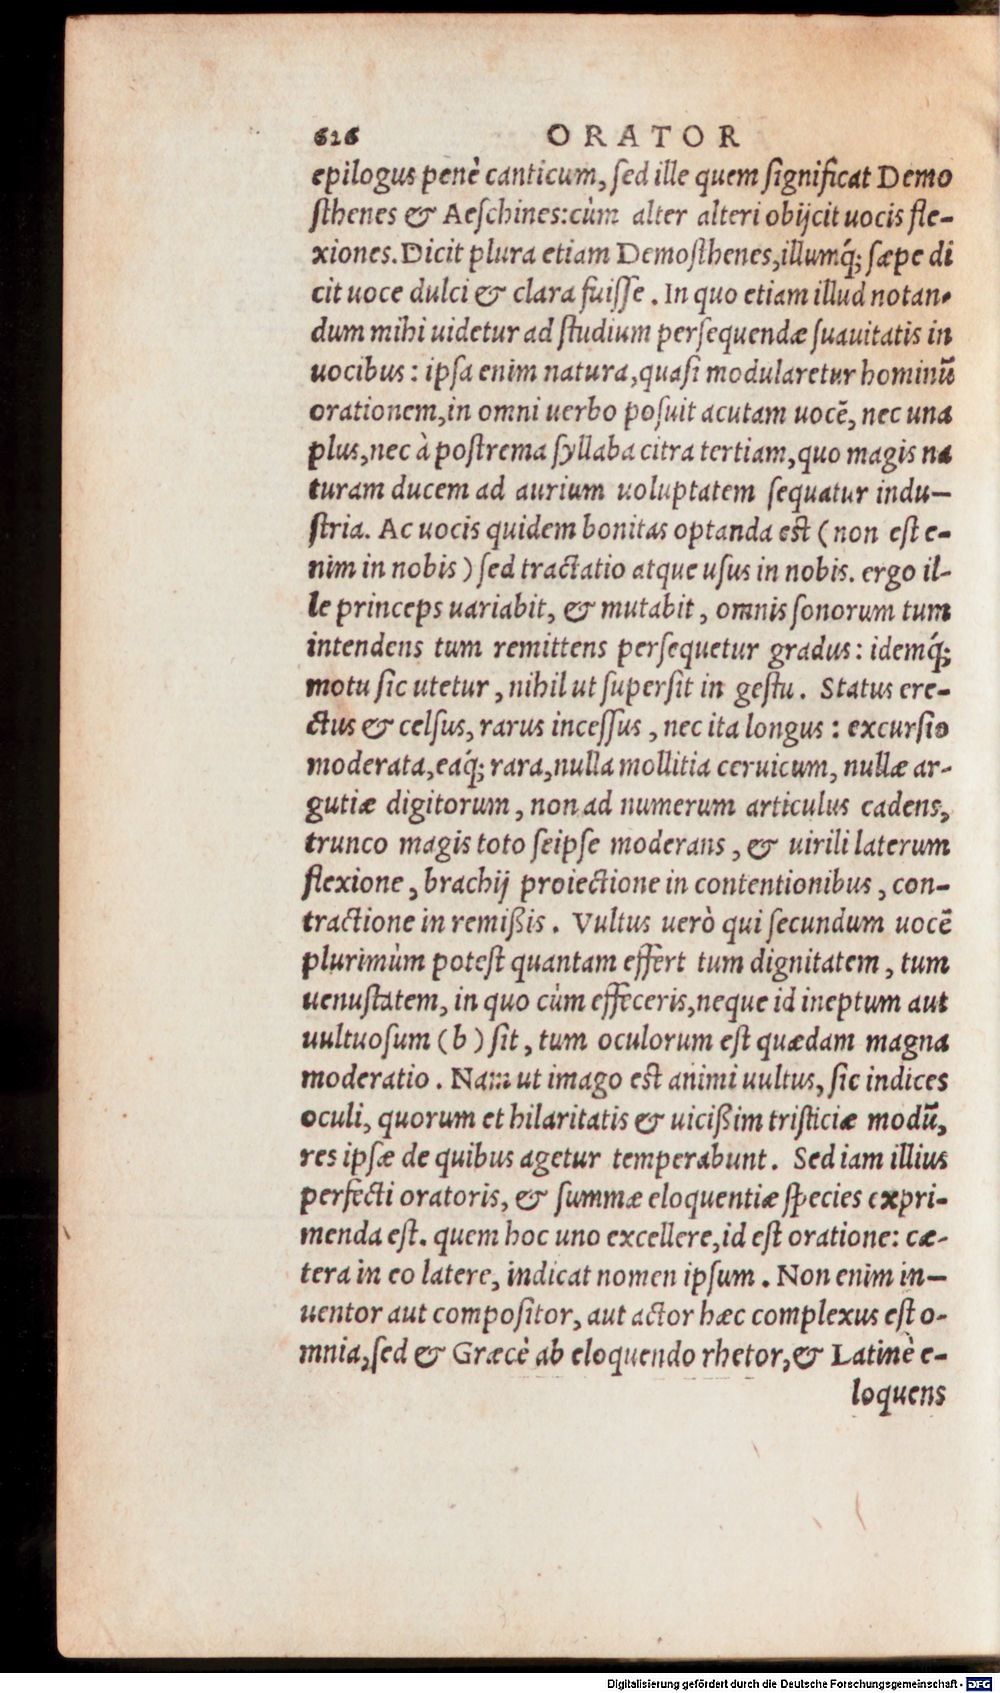 626 ORATOR
epilogus penè canticum, sed ille quem significat Demo
sthenes & Aeschines: cùm alter alteri obijcit uocis fle-
xiones. Dicit plura etiam Demosthenes, illumq́; sæpe di
cit uoce dulci & clara fuisse. In quo etiam illud notan-
dum mihi uidetur ad studium persequendæ suauitatis in
uocibus: ipsa enim natura, quasi modularetur hominũ
orationem, in omni uerbo posuit acutam uocẽ, nec una
plus, nec à postrema syllaba citra tertiam, quo magis na
turam ducem ad aurium uoluptatem sequatur indu-
stria. Ac uocis quidem bonitas optanda est (non est e-
nim in nobis) sed tractatio atque usus in nobis. ergo il-
le princeps uariabit, & mutabit, omnis sonorum tum
intendens tum remittens persequetur gradus: idemq́;
motu sic utetur, nihil ut supersit in gestu. Status ere-
ctus & celsus, rarus incessus, nec ita longus: excursio
moderata, eaq́; rara, nulla mollitia ceruicum, nullæ ar-
gutiæ digitorum, non ad numerum articulus cadens,
trunco magis toto seipse moderans, & uirili laterum
flexione, brachij proiectione in contentionibus, con-
tractione in remißis. Vultus uerò qui secundum uocẽ
plurimùm potest quantam effert tum dignitatem, tum
uenustatem, in quo cùm effeceris, neque id ineptum aut
uultuosum (b) sit, tum oculorum est quædam magna
moderatio. Nam ut imago est animi uultus, sic indices
oculi, quorum et hilaritatis & uicißim tristiciæ modũ,
res ipsæ de quibus agetur temperabunt. Sed iam illius
perfecti oratoris, & summæ eloquentiæ species expri-
menda est. quem hoc uno excellere, id est oratione: cæ-
tera in eo latere, indicat nomen ipsum. Non enim in-
uentor aut compositor, aut actor hæc complexus est o-
mnia, sed & Græcè ab eloquendo rhetor, & Latinè e-
loquens
Digitalisierung gefördert durch die Deutsche Forschungsgemeinschaft - DFG